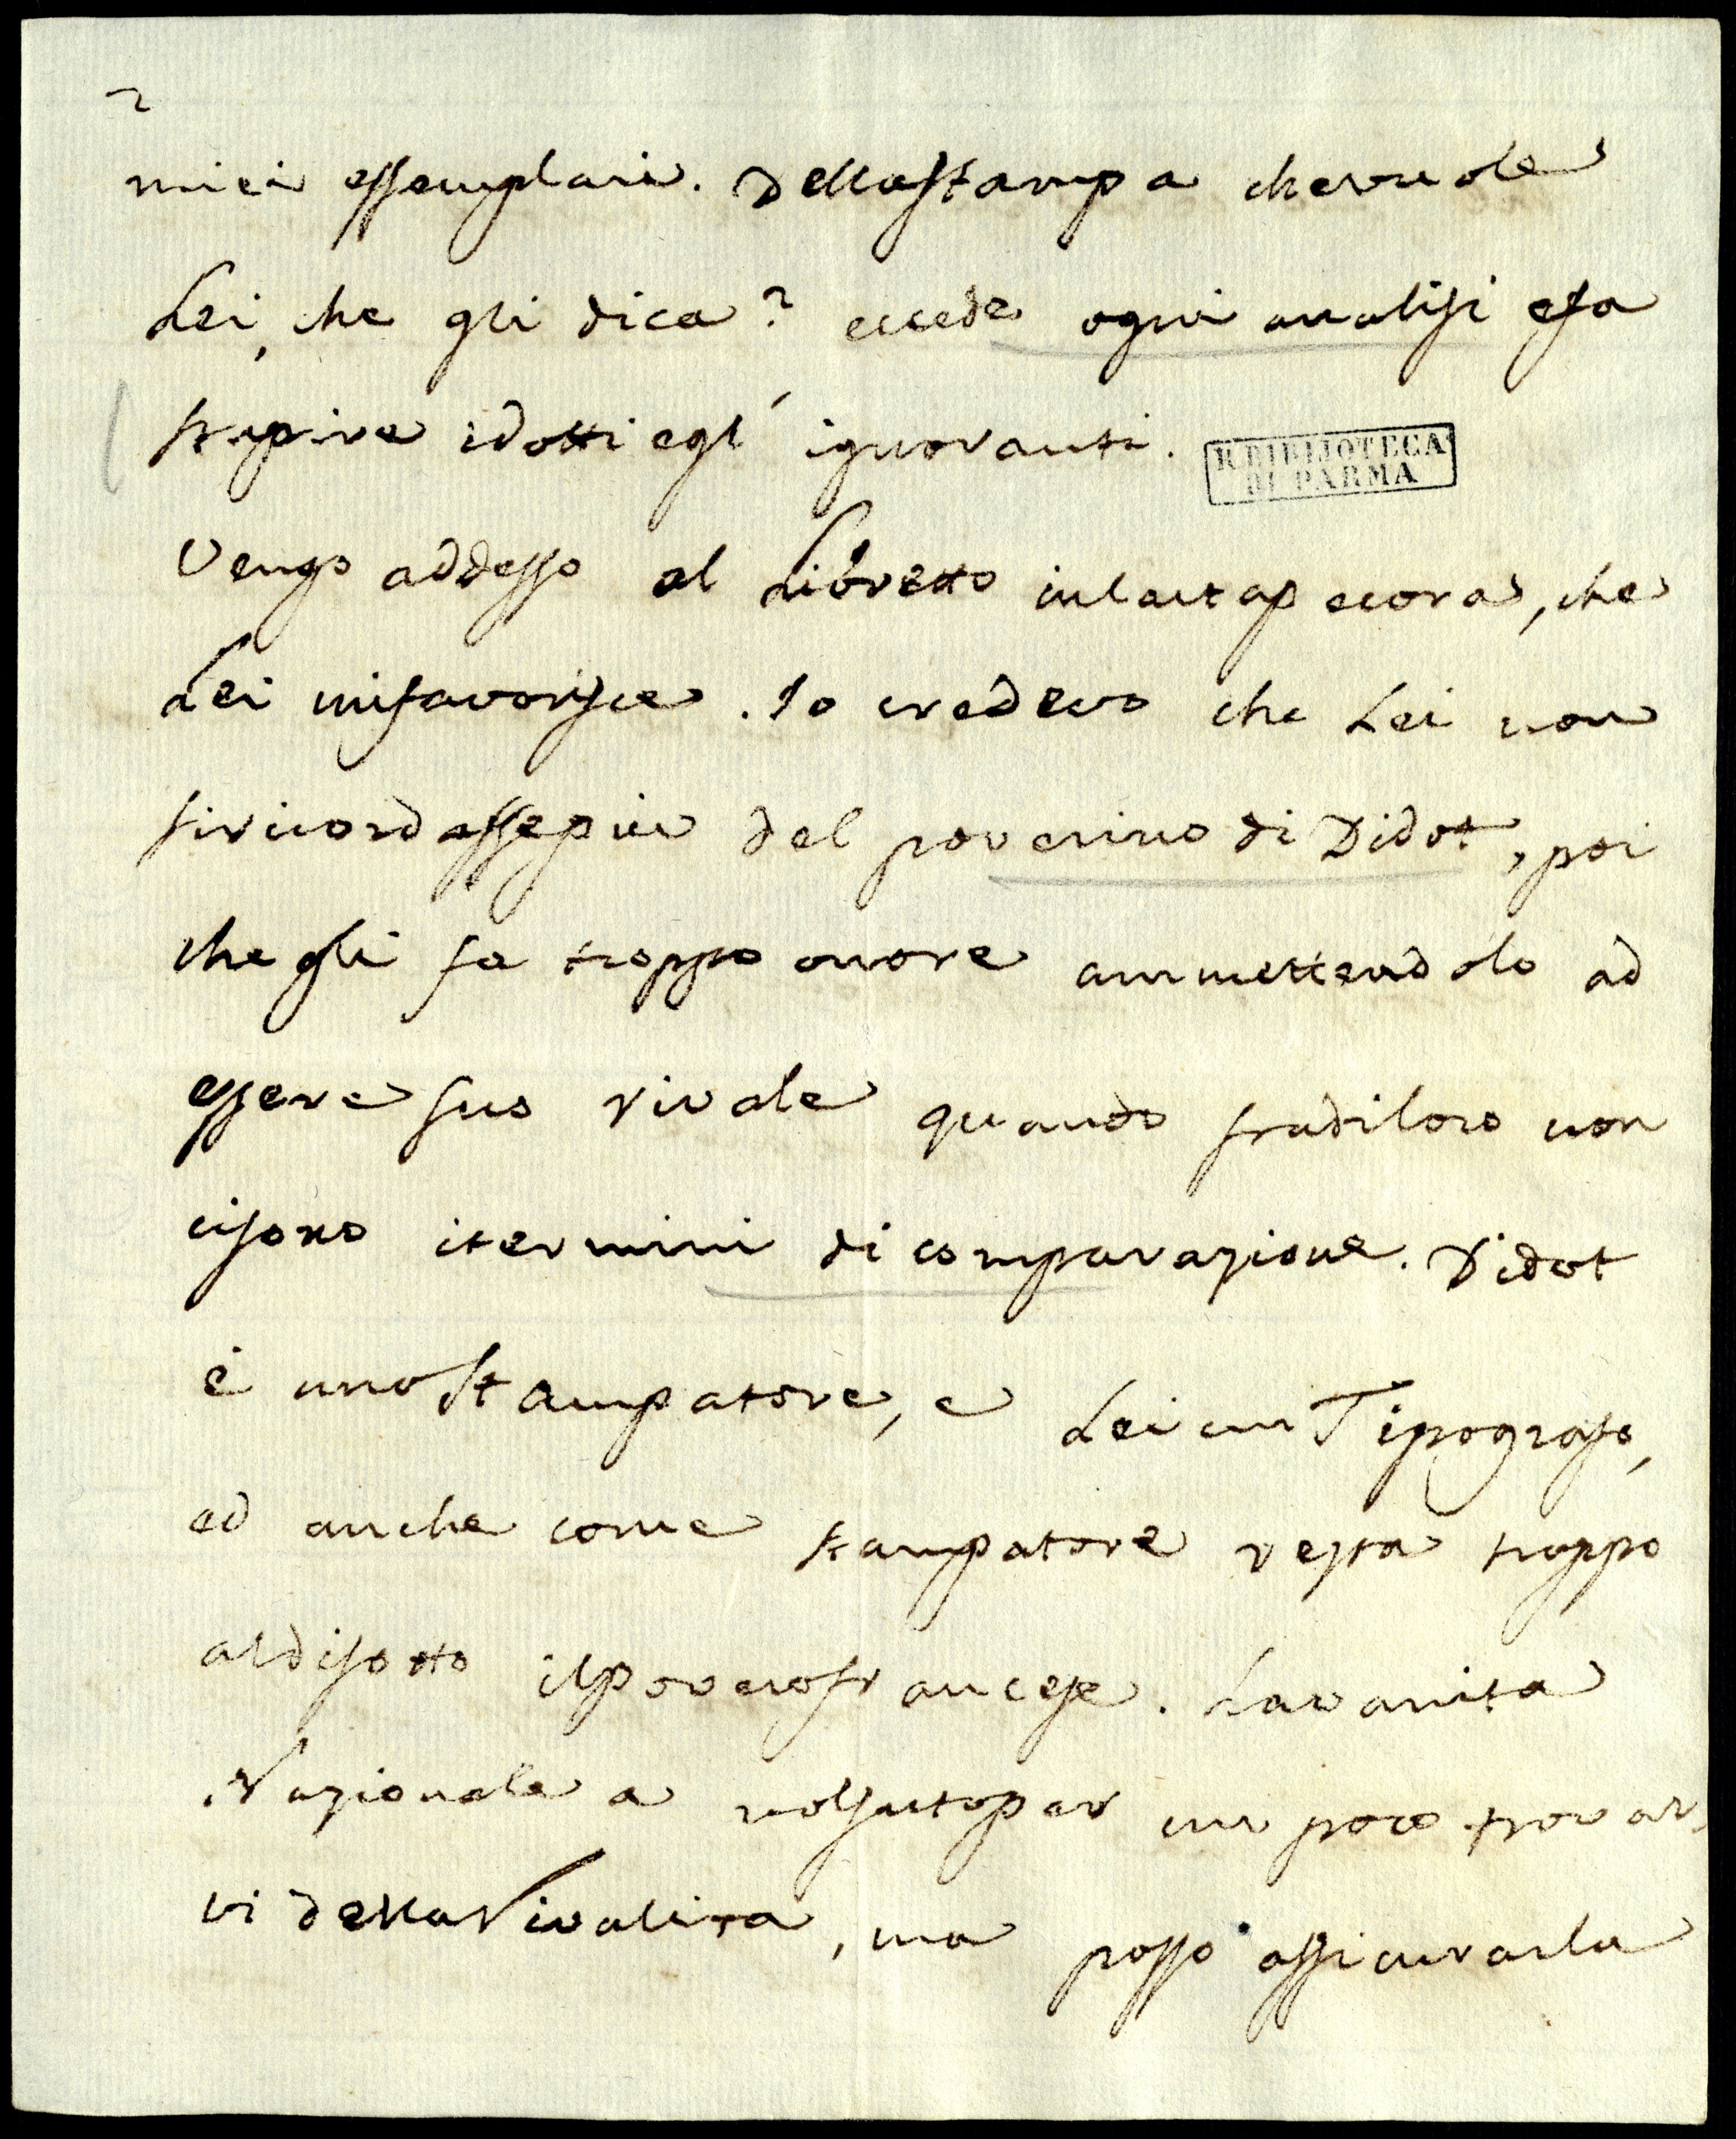 2
miei essemplari. Della stampa che vuole
Lei, che gli dica? eccede ogni analisi e fa
stupire i dotti e gl' ignoranti.
R. BIBLIOTECA
DI PARMA
Vengo addesso al Libretto in carta pecora, che
Lei mi favorisce. Io credevo che Lei non
si ricordasse piu del poverino di Didot, poi
che gli fa troppo onore ammettendolo ad
essere suo rivale quando fra di loro non
ci sono i termini di comparazione. Didot
è uno stampatore, e Lei un Tipografo,
ed anche come stampatore resta troppo
al di sotto il povero francese. La vanita
Nazionale a volsuto per un poco trovar
vi della Rivalita, ma posso assicurarla